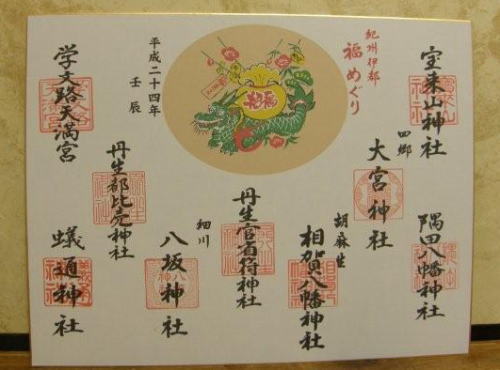 紀州伊都
福めぐり
宝来山神社
隅田八幡神社
四郷
大宮神社
胡麻生
相賀八幡神社
丹生官省符神社
細川
八坂神社
平成二十四年
壬辰
丹生都比売神社
学文路天満宮
蟻通神社